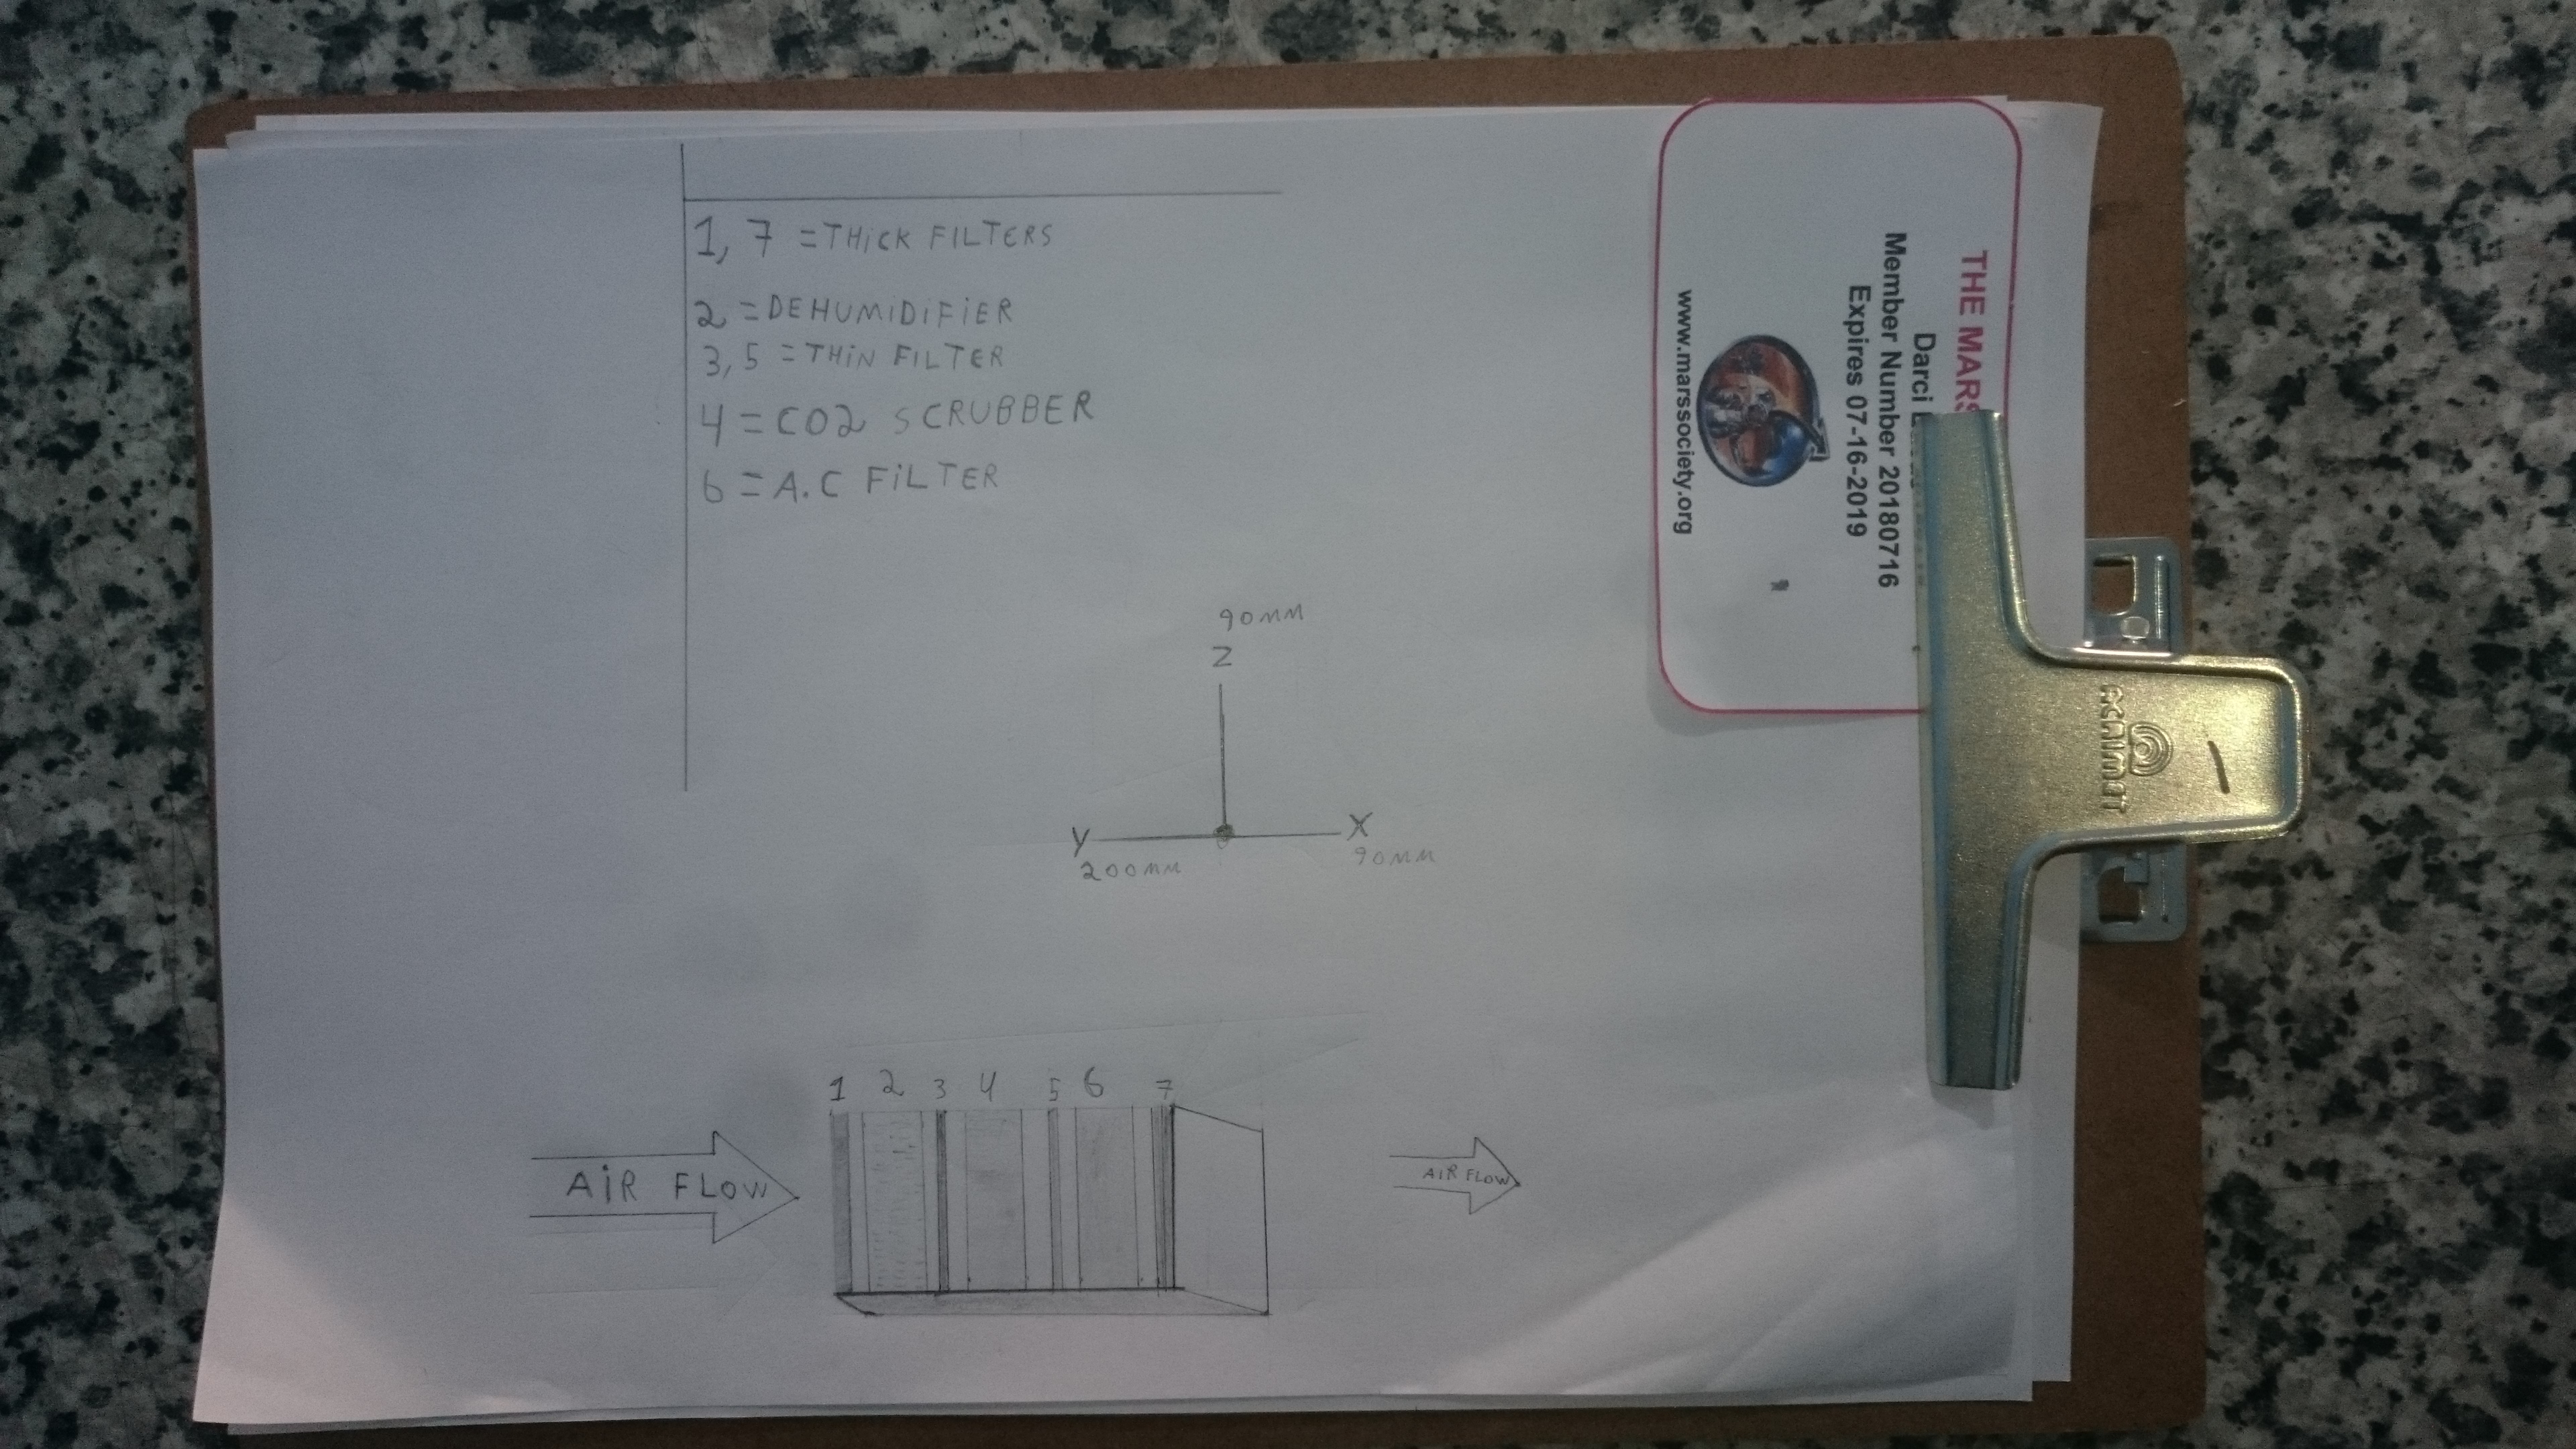 1, 7 = THiCK FILTERS
2 = DEHUMiDiFiER
3, 5 = THiN FILTER
4 = CO2 SCRUBBER
6 = A.C FiLTER
90MM
Z
Y
X
200MM
90MM
1 2 3 4 5 6 7
AiR FLOW
AIR FLOW
THE MARS
Darci
Member Number 20180716
Expires 07-16-2019
www.marssociety.org